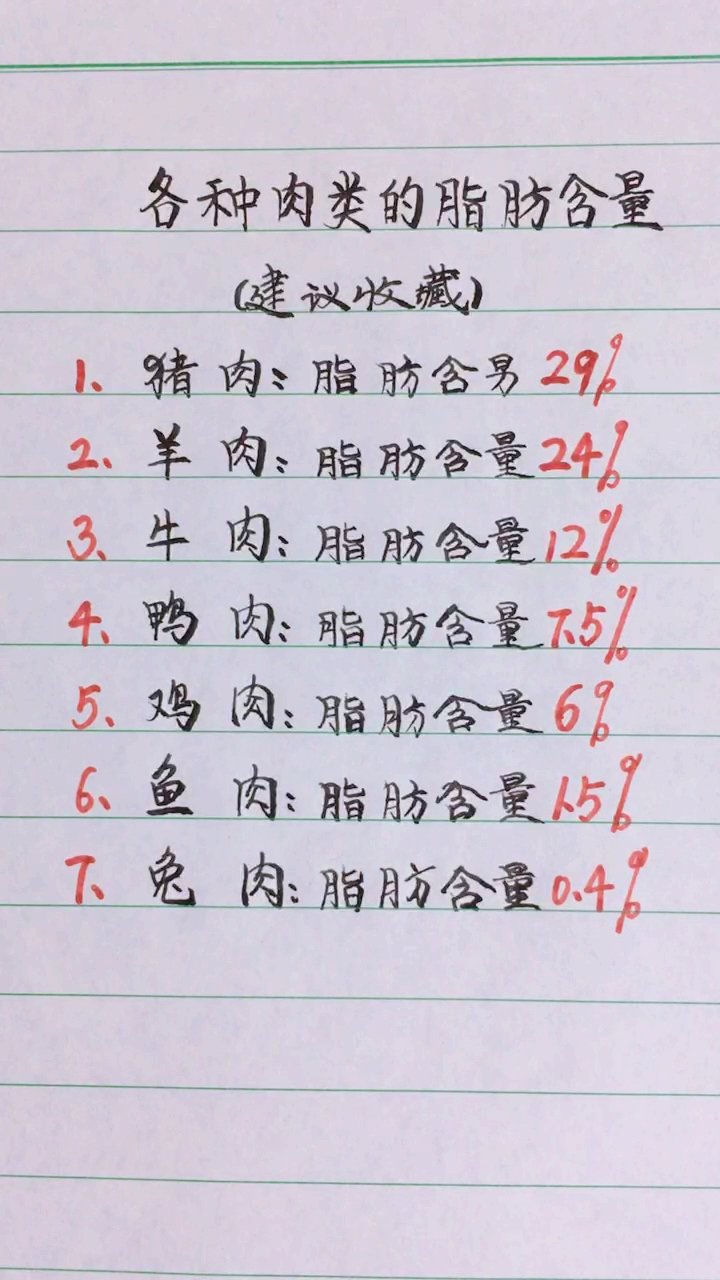 各种肉类的脂肪含量
(建议收藏)
1、猪肉：脂肪含易29%
2、羊肉：脂肪含量24%
3、牛肉：脂肪含量12%
4、鸭肉：脂肪含量7.5%
5、鸡肉：脂肪含量6%
6、鱼肉：脂肪含量1.5%
7、兔肉：脂肪含量0.4%